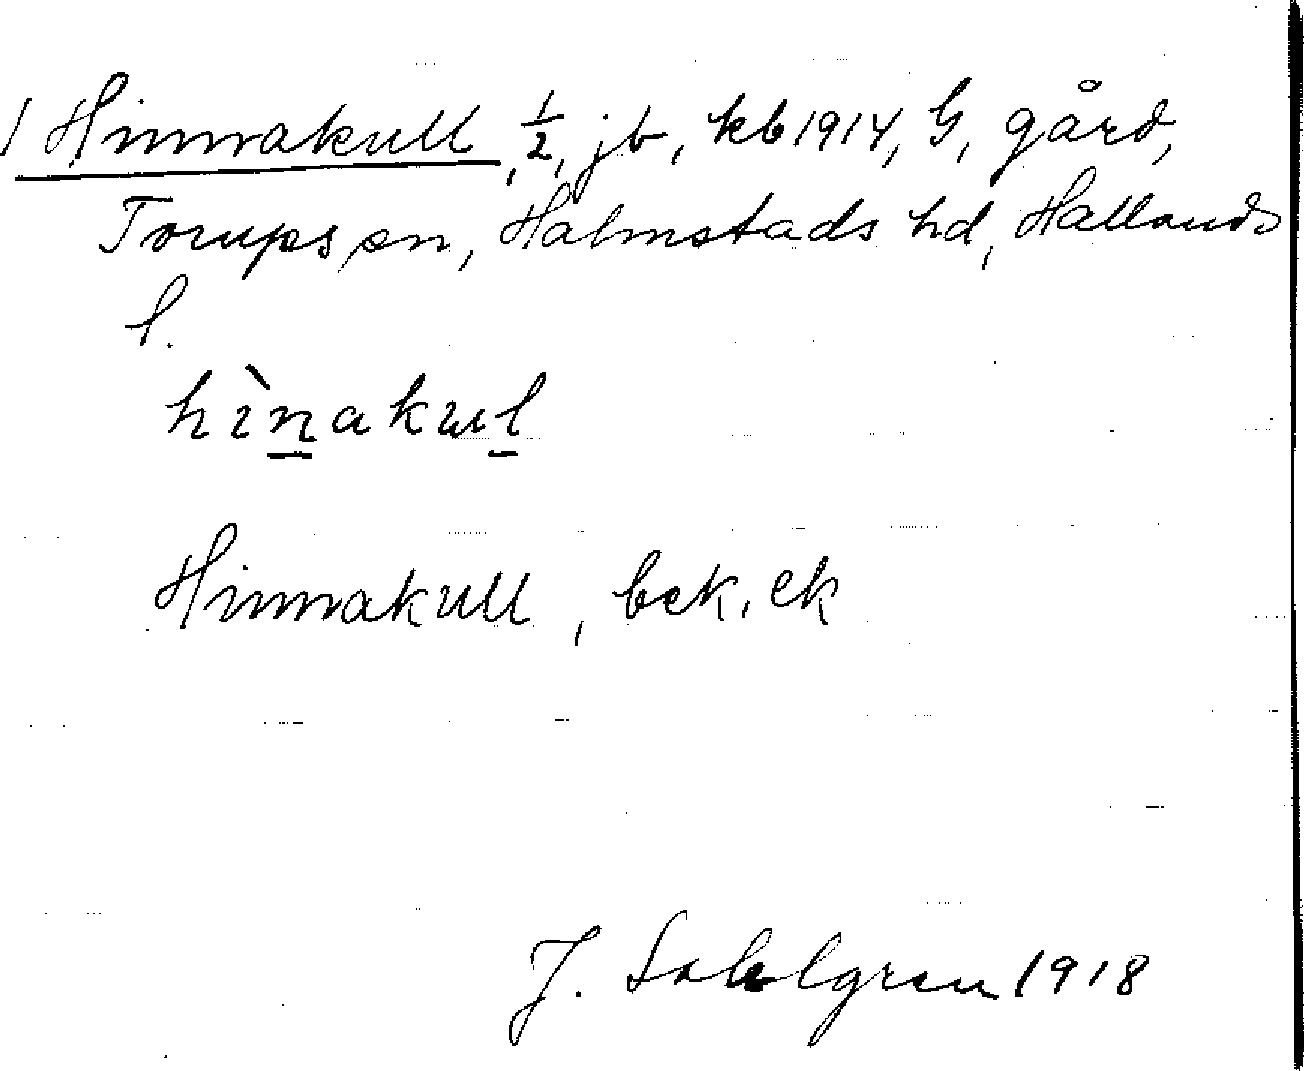 / Hinnakull, 1/2, jb, kb 1914, G, gård,
Torups sn, Halmstads hd, Hallands
l.
hìnakul
Hinnakull, bek, ek
J. Sahlgren 1918